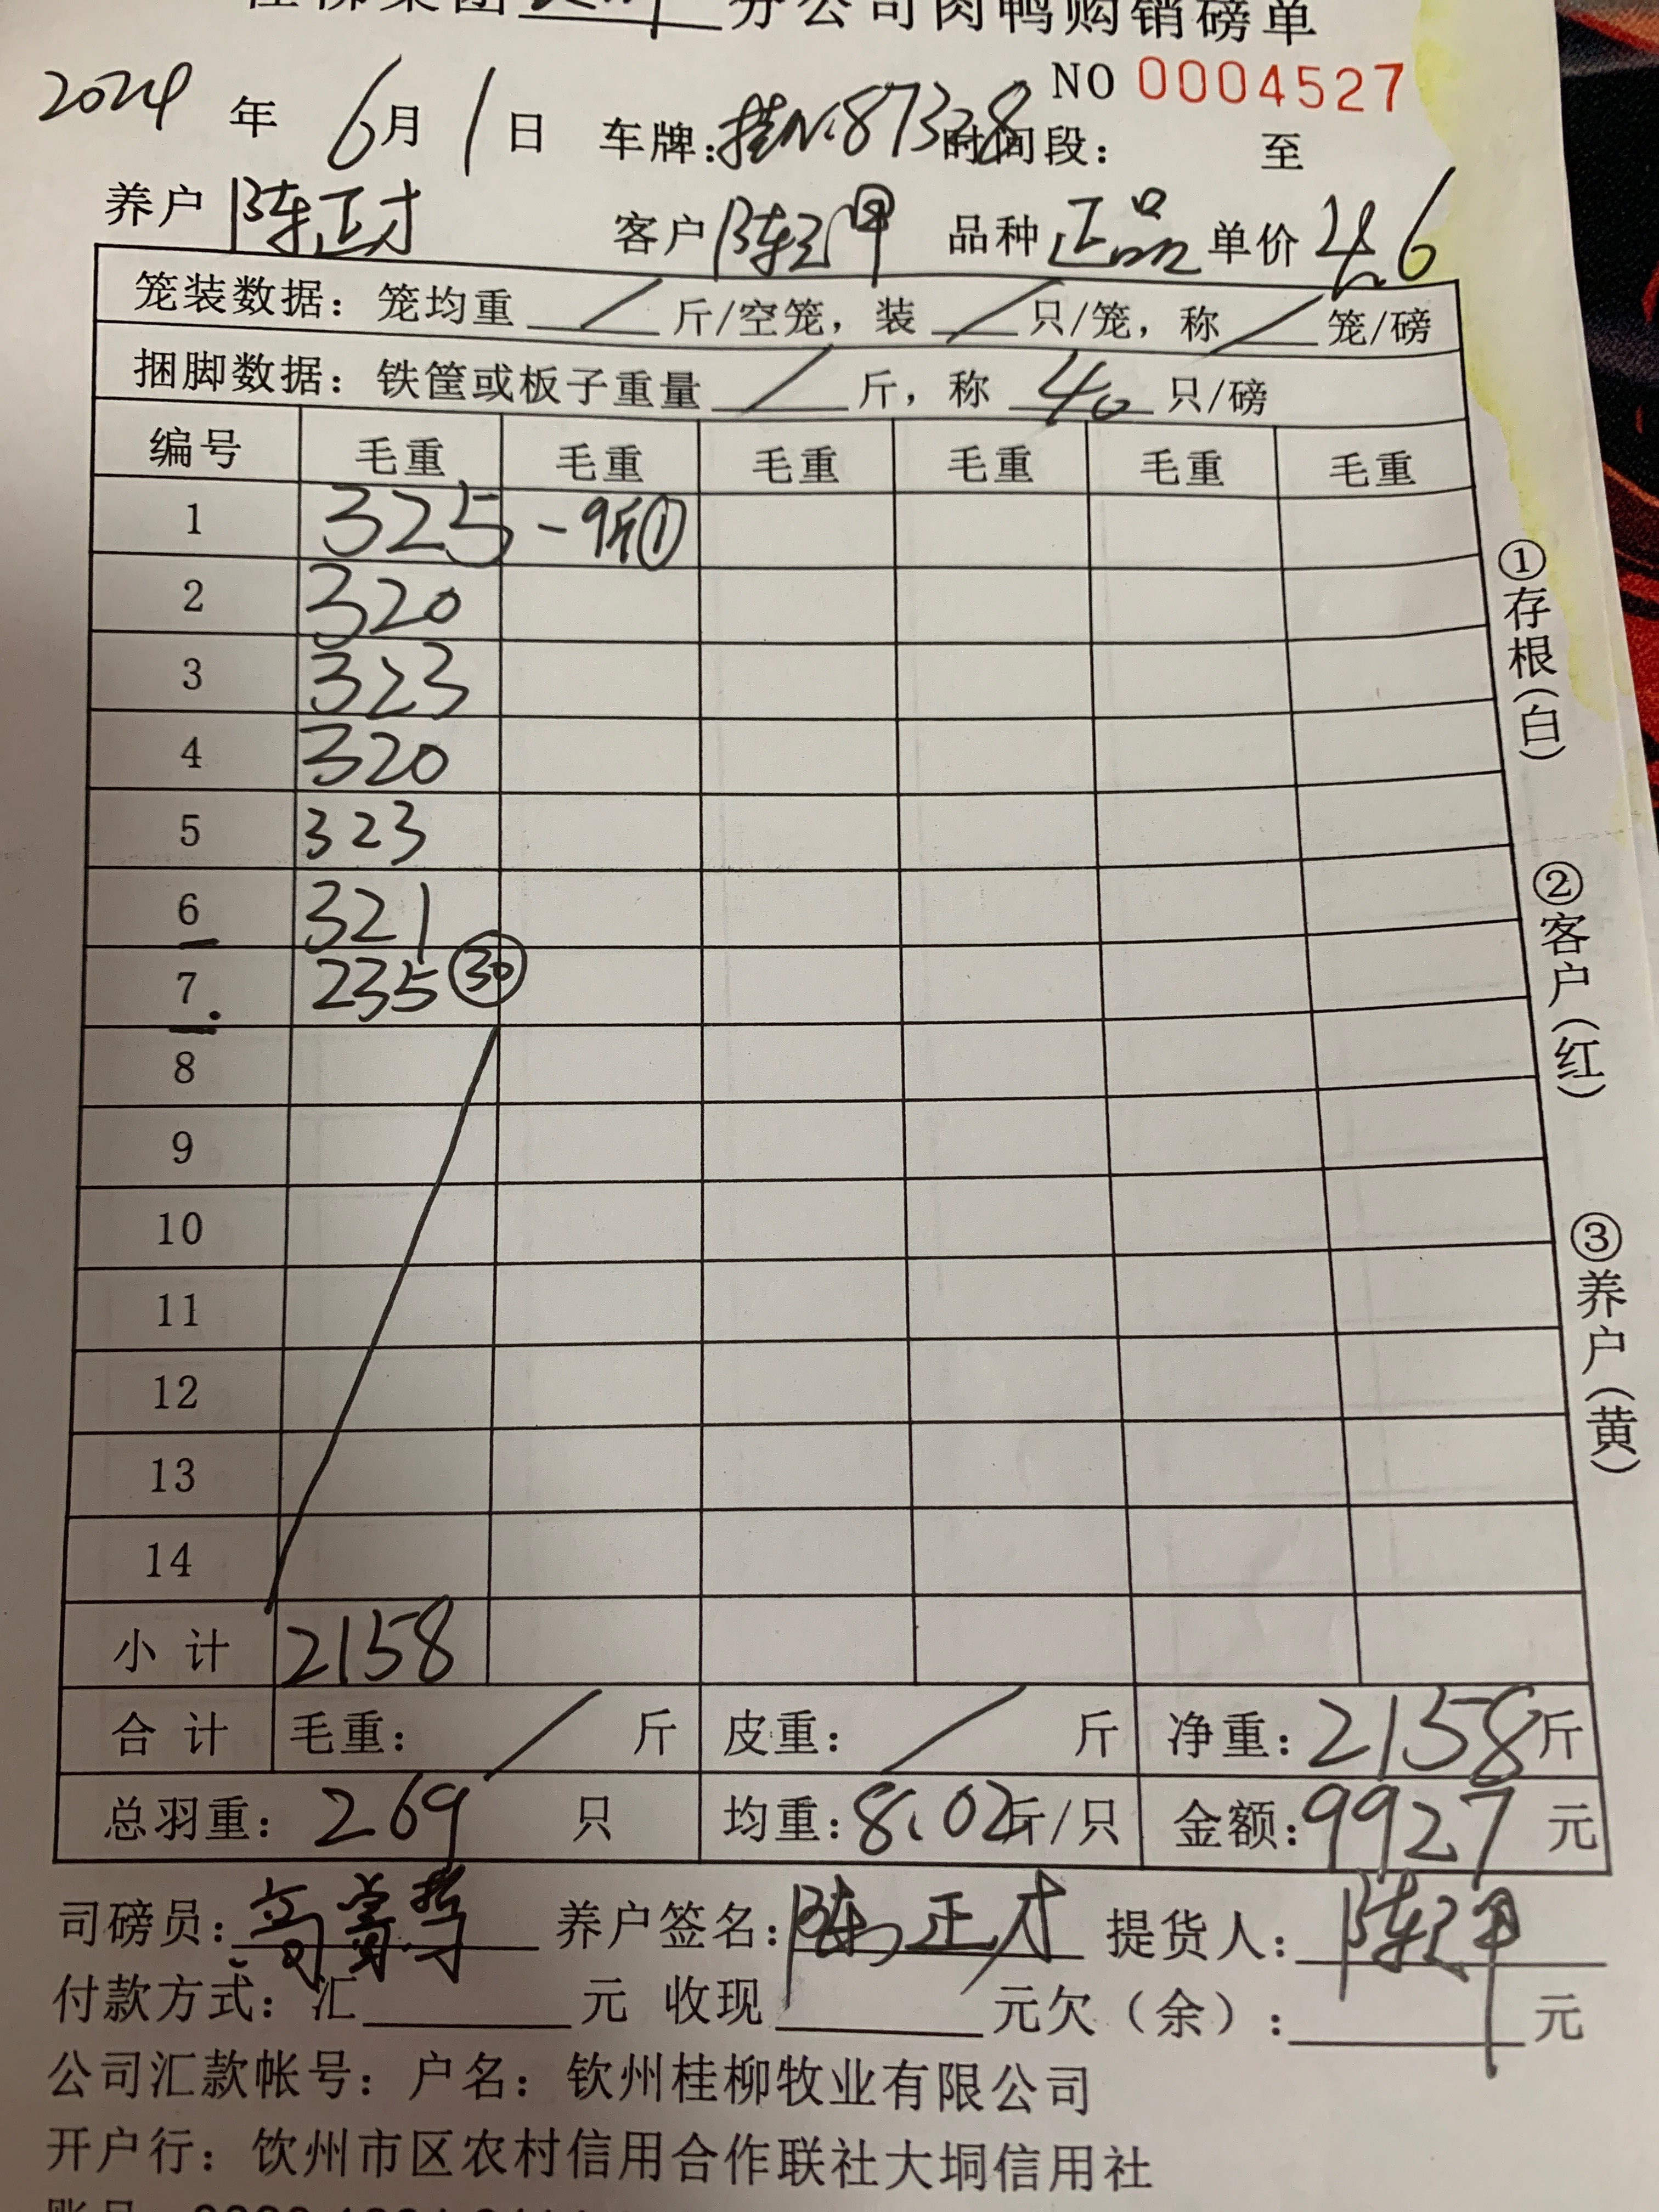 集团 分公司肉鸭购销磅单
NO 0004527
2024年 6月 1日 车牌:桂N·87328 时间段: 至
养户 陈正才 客户 陈 品种 正品 单价 4.6
笼装数据: 笼均重 / 斤/空笼, 装 / 只/笼, 称 / 笼/磅
捆脚数据: 铁筐或板子重量 / 斤, 称 40 只/磅
编号 毛重 毛重 毛重 毛重 毛重 毛重
1 325 -9斤①
2 320
3 323
4 320
5 323
6 321
7 235 ㉚
8
9
10
11
12
13
14
小计 2158
合计 毛重: / 斤 皮重: / 斤 净重: 2158斤
总羽重: 269 只 均重: 8.02斤/只 金额: 9927 元
司磅员: 养户签名: 陈正才 提货人: 陈
付款方式: 汇 元 收现 元欠(余): 元
公司汇款帐号: 户名: 钦州桂柳牧业有限公司
开户行: 钦州市区农村信用合作联社大垌信用社
①存根(白)
②客户(红)
③养户(黄)